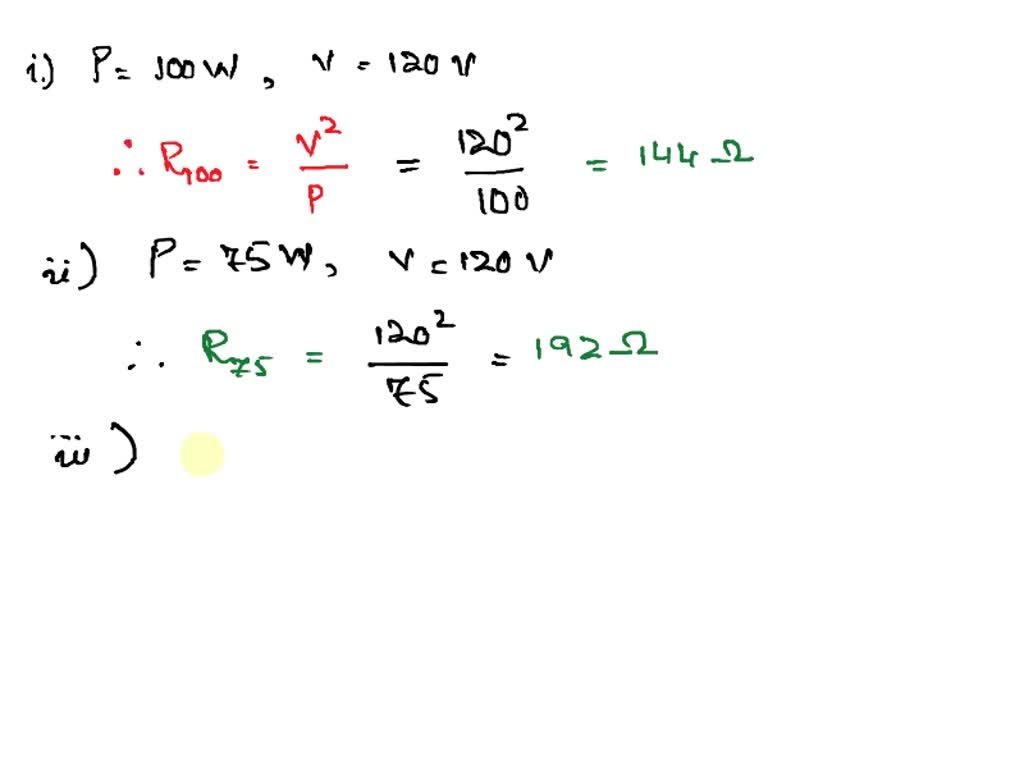 i.) P = 100 W, V = 120 V
∴ R₁₀₀ = V²/P = 120²/100 = 144 Ω
ii) P = 75 W, V = 120 V
∴ R₇₅ = 120²/75 = 192 Ω
iii)